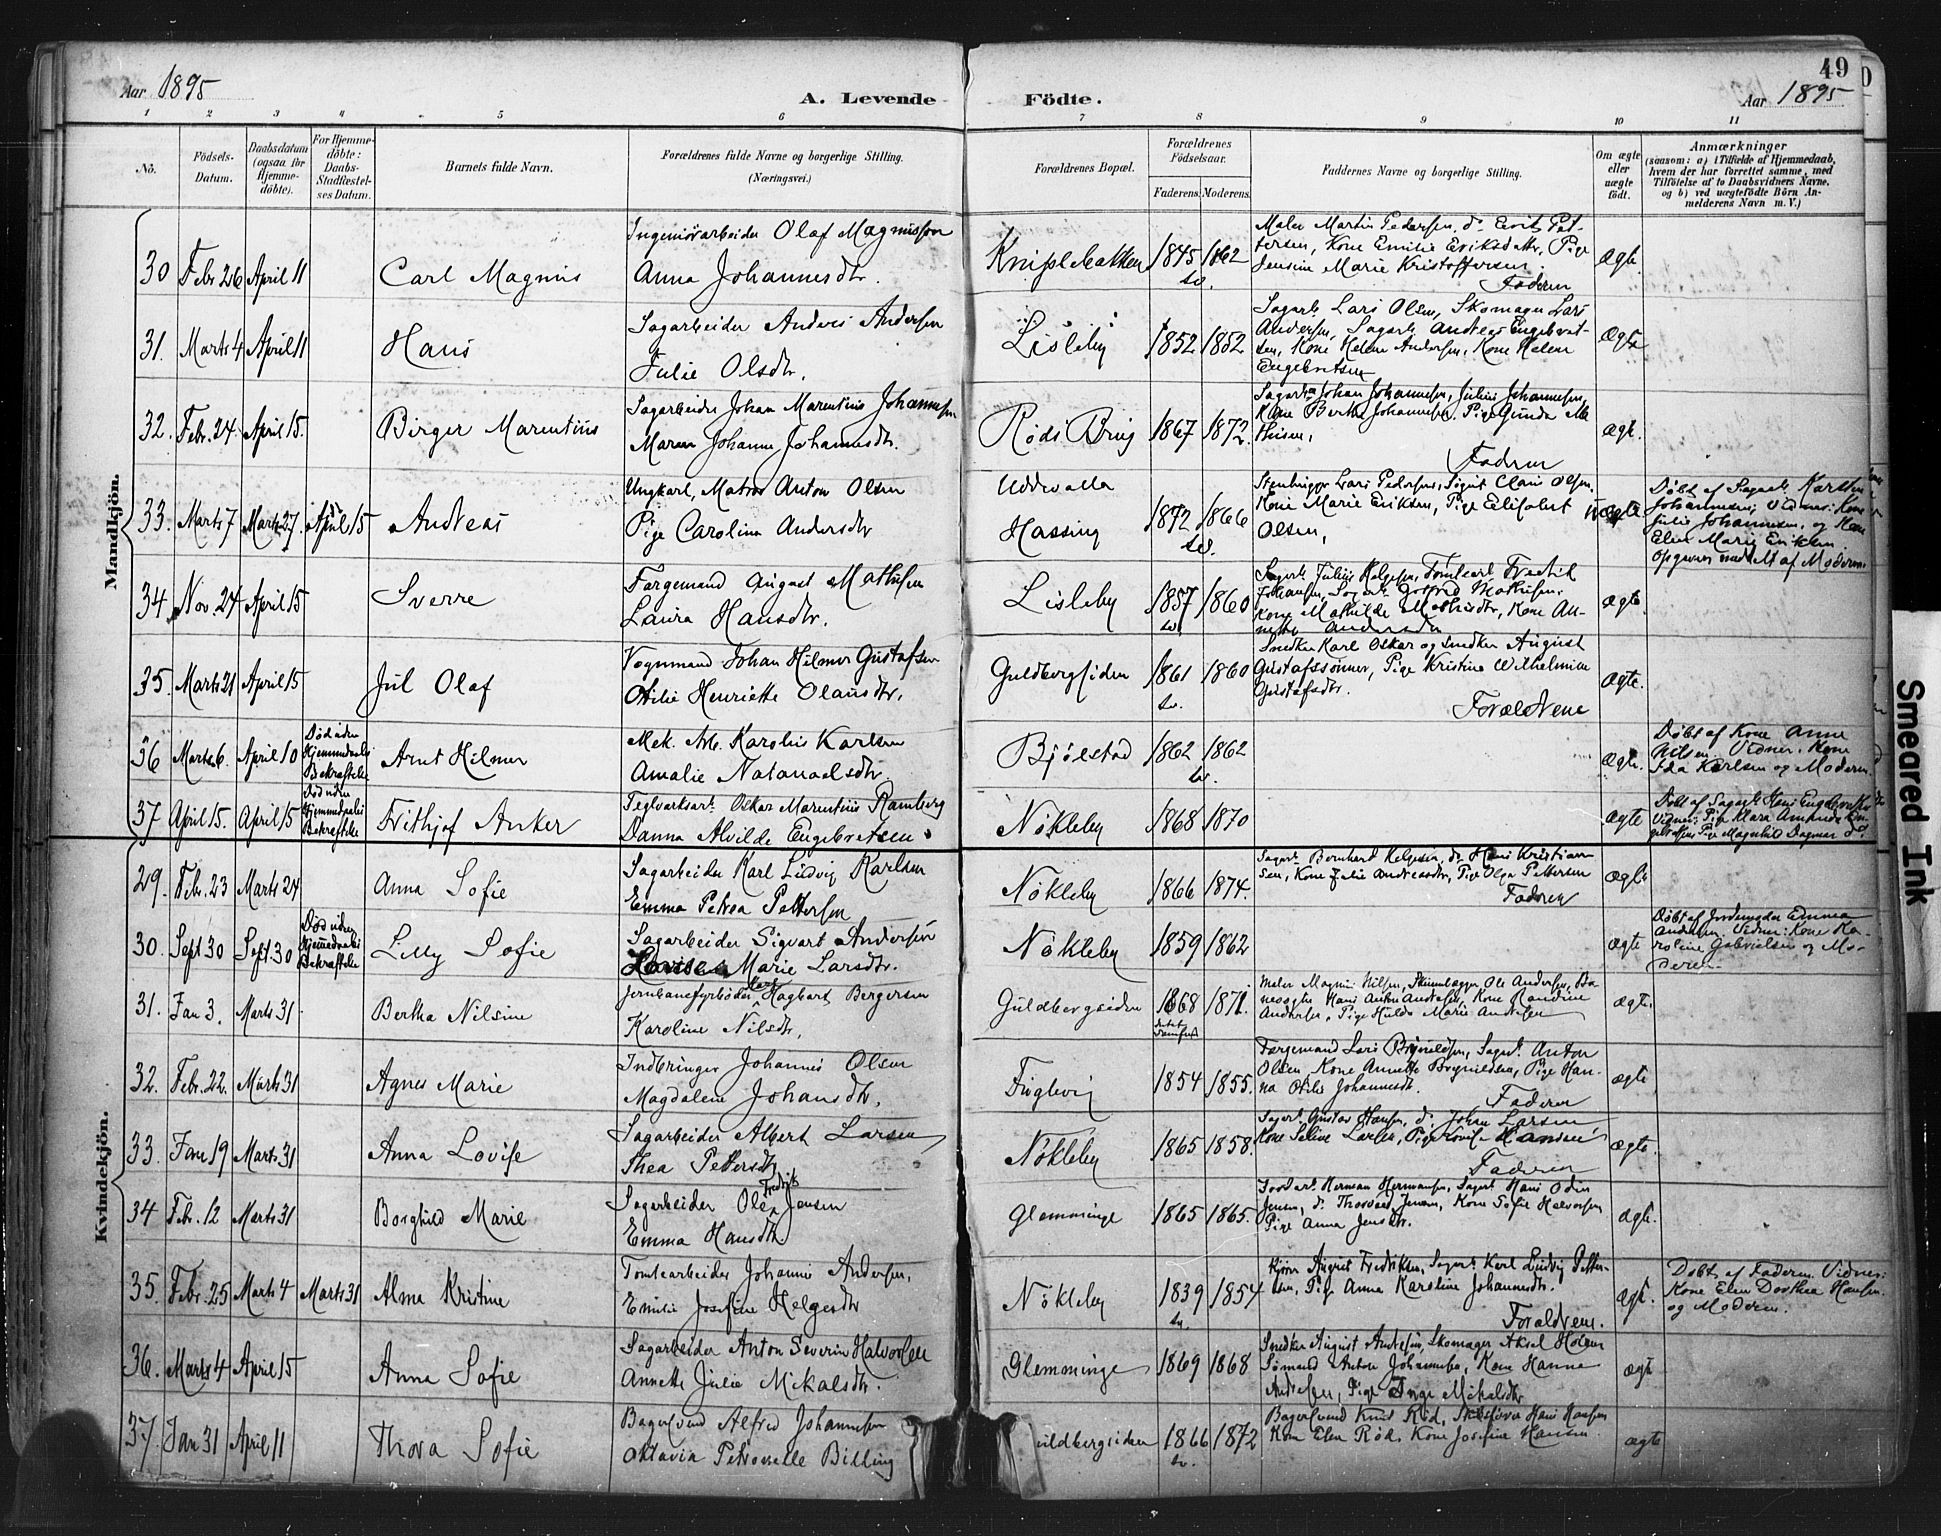 49
Aar 1895
A. Levende Födte.
Aar 1895
1 2 3 4 5 6 7 8 9 10 11
No.
Födsels-Datum.
Daabsdatum (ogsaa for Hjemme-döbte).
For Hjemme-döbte: Daabs-Stadfæstel-ses Datum.
Barnets fulde Navn.
Forældrenes fulde Navne og borgerlige Stilling.
(Næringsvei.)
Forældrenes Bopæl.
Forældrenes Födselsaar.
Faderens. Moderens.
Faddernes Navne og borgerlige Stilling.
Om ægte eller uægte födt.
Anmærkninger
(saasom: a) i Tilfælde af Hjemmedaab,
hvem der har forrettet samme, med
Tilföielse af to Daabsvidners Navne,
og b) ved uægtefödte Börn An-
melderens Navn m. V.)
Mandkjön.
30 Febr 26 April 11 Carl Magnus
Ingeniörarbeider Olaf Magnusson
Anna Johannesdtr.
Kniplebakken 1845 1862
sv.
Maler Martin Pedersen, do Berit Pet-
tersen, Kone Emilie Eriksdtr, Pige
Jensine Marie Kristoffersen.
Faderen
ægte.
31. Marts 4 April 11 Hans
Sagarbeider Anders Andersen
Julie Olsdtr.
Lisleby 1852 1852
Sagarb. Lars Olsen, Skomager Lars
Andersen, Sagarb. Andreas Engebret-
sen, Kone Helene Andersen, Kone Helene
Engebretsen
ægte
32. Febr. 24. April 15. Birger Marentius
Sagarbeider Johan Marentius Johannesen
Maren Johanne Johannesdtr.
Röds Brug 1867 1872.
Sagarb. Johan Johannesen, Julius Johannesen,
Kone Berthe Johannesen, Pige Gunda Ma-
thisen,
Faderen
ægte.
33. Marts 7 Marts 27. April 15 Andreas
Ungkarl, Matros Anton Olsen
Pige Carolina Andersdtr
Uddevalla
Hassing
1872 1866
sv.
Stenhugger Lars Pedersen, Sigurt Claus Olsen,
Kone Marie Eriksen, Pige Elisabet
Olsen,
uægte
Döbt af Sagarb. Karsten
Johannesen; Vidner: Kone
Julie Johannesen, og Kone
Elen Marie Eriksen
Opgivet af Moderen.
34 Nov 24 April 15 Sverre
Fargemand August Mathisen
Laura Hansdtr.
Lisleby 1857 1860
sv.
Sagarb. Julius Helgesen, Tomtearb. Fredrik
Johansen, Sagarb. Gotfred Mathisen,
Kone Mathilde Mathisdtr, Kone An-
nette Andersdtr
ægte.
35. Marts 21 April 15 Jul Olaf
Vognmand Johan Hilmer Gustafsen
Otilie Henriette Olausdtr.
Guldbergsiden 1861 1860
sv.
Snedker Karl Oskar og Snedker August
Gustafssönner, Pige Kristine Wilhelmine
Gustafsdtr.
Forældrene
ægte.
36 Marts 6. April 10
Död uden
Hjemmedaabs
Bekræftelse
Arnt Hilmer
Mek. Arb. Karolius Karlsen
Amalie Natanaelsdtr
Bjölstad 1862 1862
sv.
ægte.
Döbt af Kone Anne
Nilsen. Vidner: Kone
Ida Karlsen og Moderen
37 April 15. April 15
Död uden
Hjemmedaabs
Bekræftelse
Frithjof Anker
Teglverksarb. Oskar Marentius Ramberg
Danna Alvilde Engebretsen
Nökleby 1868 1870
ægte
Döbt af Sagarb. Hans Engebretsen
Vidner: Pige Klara Amanda En-
gebretsen, Pige Magnhild Dagmar do.
Kvindekjön.
29. Febr. 23 Marts 24 Anna Sofie
Sagarbeider Karl Ludvig Karlsen
Emma Petrea Pettersen
Nökleby 1866 1874.
Sagarb. Bernhard Helgesen, do Hans Kristian-
sen, Kone Julie Andreasdtr, Pige Olga Pettersen
Faderen
ægte
30. Sept 30 Sept. 30
Död uden
Hjemmedaabs
Bekræftelse
Lilly Sofie
Sagarbeider Sigvart Andersen
Marie Larsdtr.
Nökleby 1859 1862
ægte
Döbt af Jordemoder Emma
Andersen. Vidner: Kone Ka-
roline Gabrielsen og Mo-
deren.
31. Jan 3. Marts 31 Bertha Nilsine
Jernbanefyrböder Karl Hagbart Bergersen
Karoline Nilsdtr.
Guldbergsiden 1868 1871.
Maler Magnus Nilsen, Stenhugger Ole Andersen, Ba-
nevogter Hans Anton Andersen, Kone Randine
Andersen, Pige Hulda Marie Andersen
ægte.
32. Febr. 22. Marts 31 Agnes Marie
Indbringer Johannes Olsen
Magdalene Johansdtr.
Fuglevig 1854 1855.
Fargemand Lars Brynildsen, Sagarb. Anton
Olsen, Kone Annette Brynildsen, Pige Han-
na Otilie Johannesdtr.
Faderen
ægte
33. Jan 19 Marts 31 Anna Lovise
Sagarbeider Albert Larsen
Thea Pettersdtr
Nökleby 1865 1858.
Sagarb. Gustav Hansen, do Johan Larsen
Kone Seline Larsen, Pige Lovise Hansen
Faderen
ægte.
34 Febr. 12 Marts 31 Borghild Marie
Sagarbeider Ole Fredrik Jensen
Emma Hansdtr
Glemminge 1865 1865.
Jordarb. Herman Hermansen, Sagarb. Hans Oden
Jensen, do Thorvald Jensen, Kone Sofie Halvorsen,
Pige Anna Jensdtr.
ægte.
35. Febr. 25 Marts 4 Marts 31 Alma Kristine
Tomtearbeider Johannes Andersen,
Emilie Josefine Helgesdtr
Nökleby 1839 1854
sv.
Kjörer August Fredriksen, Sagarb. Karl Ludvig Petter-
sen, Pige Anna Karoline Johannesdtr.
Forældrene.
ægte.
Döbt af Faderen. Vidner:
Kone Elen Dorthea Hansen
og Moderen.
36. Marts 4 April 15 Anna Sofie
Sagarbeider Anton Severin Halvorsen
Annette Julie Mikalsdtr.
Glemminge 1869 1868
Snedker August Andresen, Skomager Aksel Holm
Sömand Anton Johannesen, Kone Hanna
Andresen, Pige Inga Mikalsdtr
ægte
37. Jan 31 April 11 Thora Sofie
Bagersvend Alfred Johannesen
Oktavia Petronelle Billing
uldbergsiden 1866 1872
sv.
Bagersvend Knut Röd, Hans Hansen
Kone Elen Röd, Kone Josefine Hansen
ægte
Smeared Ink